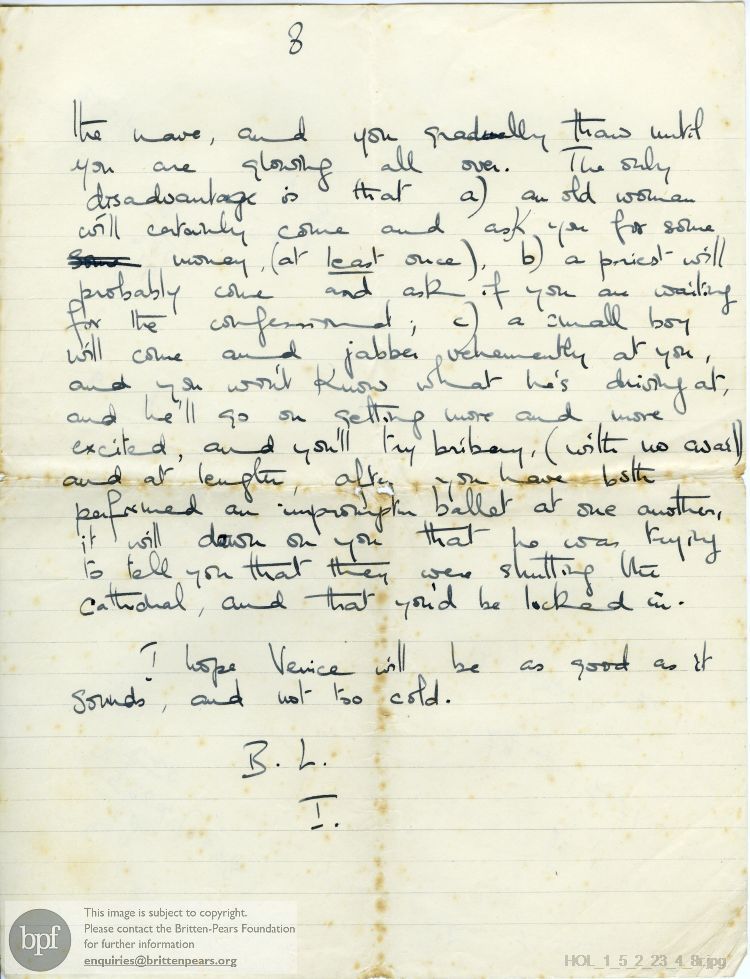 8
the nave, and you gradually thaw until
you are glowing all over. The only
disadvantage is that a) an old woman
will certainly come and ask you for some
some money, (at least once), b) a priest will
probably come and ask if you are waiting
for the confessional; c) a small boy
will come and jabber vehemently at you,
and you won't know what he's driving at,
and he'll go on getting more and more
excited, and you'll try bribery, (with no avail)
and at length, after you have both
performed an impromptu ballet at one another,
it will dawn on you that he was trying
to tell you that they were shutting the
cathedral, and that you'd be locked in.
I hope Venice will be as good as it
sounds, and not too cold.
B. L.
I.
bpf
This image is subject to copyright.
Please contact the Britten-Pears Foundation
for further information
enquiries@brittenpears.org
HOL_1_5_2_23_4_8r.jpg